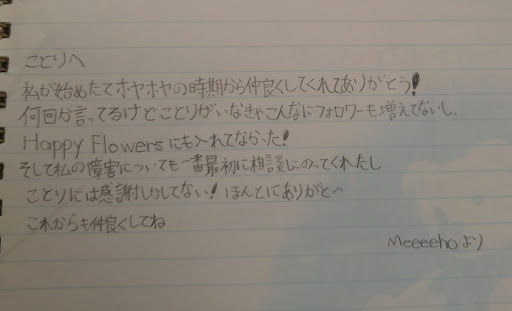 ことりへ
私が始めたてホヤホヤの時期から仲良くしてくれてありがとう!
何回か言ってるけどことりがいなきゃこんなにフォロワーも増えてないし、
Happy Flowersにも入れてなかった!
そして私の障害についても一番最初に相談にのってくれたし
ことりには感謝しかしてない! ほんとにありがと〜
これからも仲良くしてね
Meeeehoより